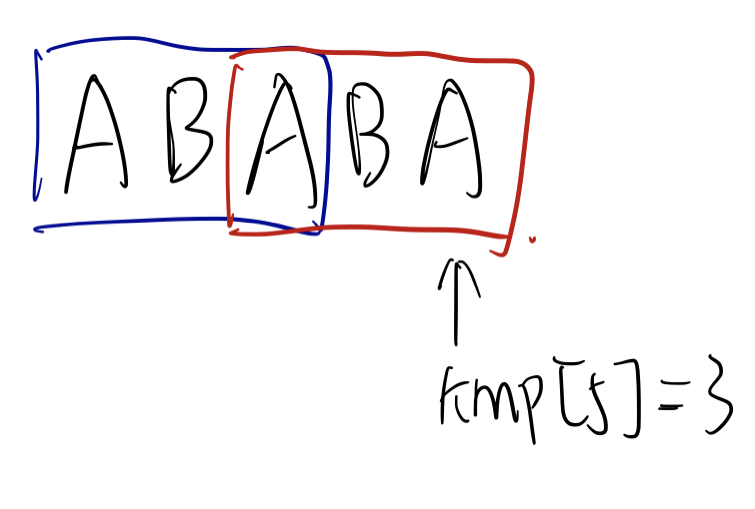 ABABA
kmp[5]=3